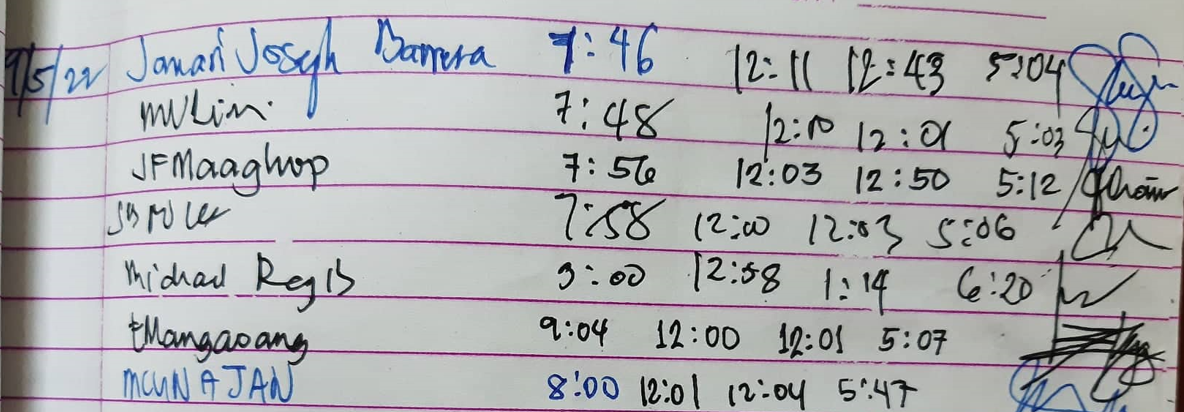 9/5/22 Jamari Joseph Barrera 7:46 12:11 12:43 5:04
MVLim 7:48 12:10 12:01 5:03
JFMaaghop 7:56 12:03 12:50 5:12
7:58 12:00 12:03 5:06
Michael Regis 9:00 12:58 1:14 6:20
tMangaoang 9:04 12:00 12:01 5:07
MCUNAJAN 8:00 12:01 12:04 5:47